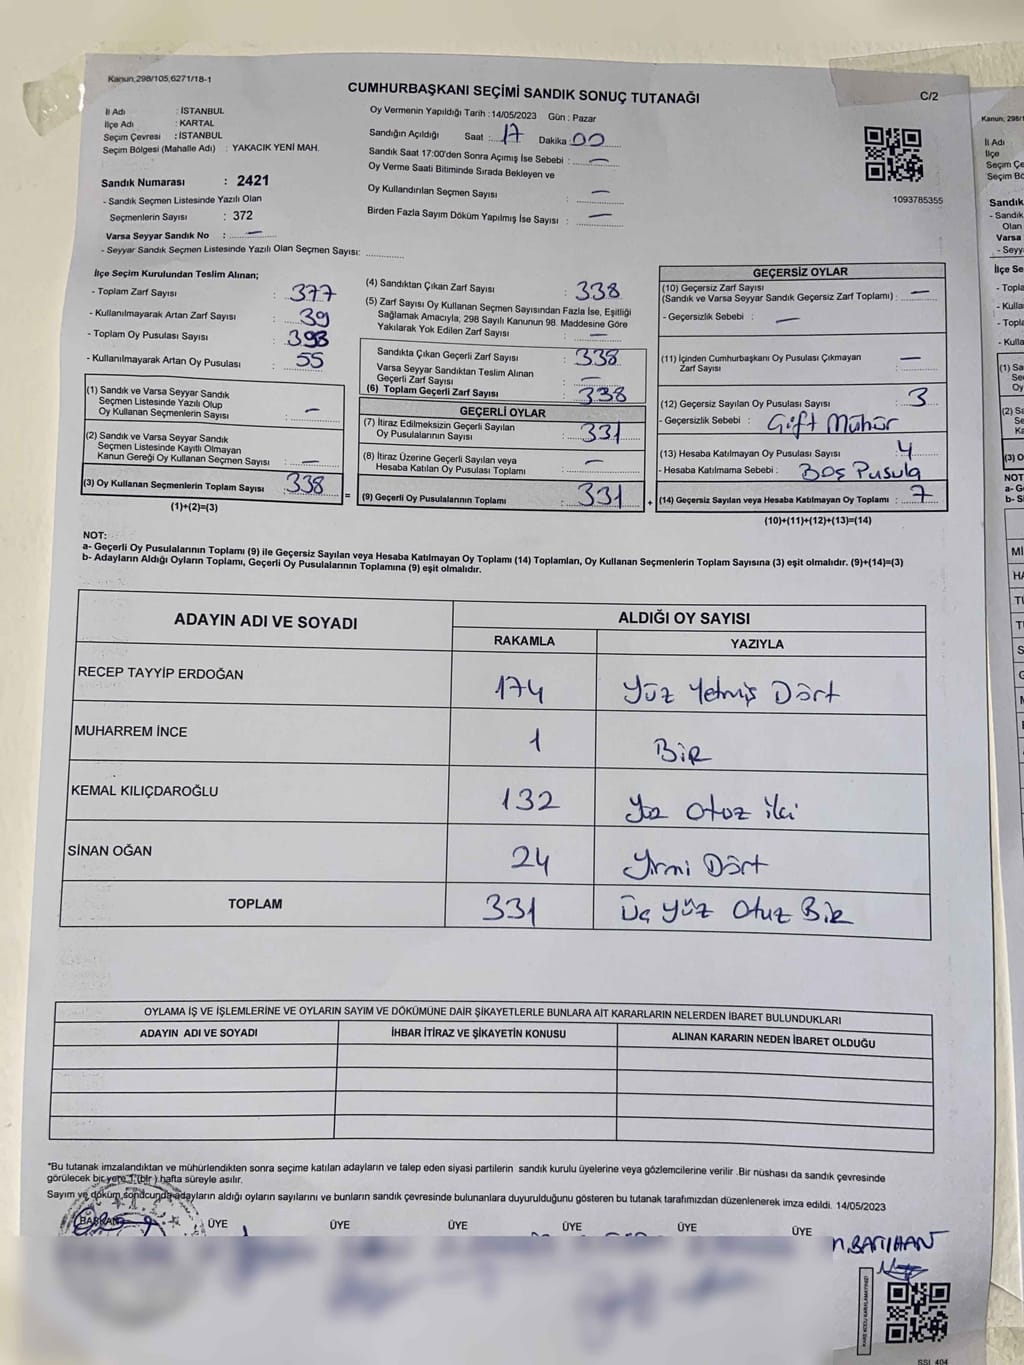 Kanun,298/105,6271/18-1
CUMHURBAŞKANI SEÇİMİ SANDIK SONUÇ TUTANAĞI
C/2
İl Adı : İSTANBUL
İlçe Adı : KARTAL
Seçim Çevresi : İSTANBUL
Seçim Bölgesi (Mahalle Adı) : YAKACIK YENİ MAH.
Sandık Numarası : 2421
- Sandık Seçmen Listesinde Yazılı Olan
Seçmenlerin Sayısı : 372
Varsa Seyyar Sandık No : —
- Seyyar Sandık Seçmen Listesinde Yazılı Olan Seçmen Sayısı:
Oy Vermenin Yapıldığı Tarih :14/05/2023 Gün : Pazar
Sandığın Açıldığı Saat : 17 Dakika 00
Sandık Saat 17:00'den Sonra Açımış İse Sebebi : —
Oy Verme Saati Bitiminde Sırada Bekleyen ve
Oy Kullandırılan Seçmen Sayısı : —
Birden Fazla Sayım Döküm Yapılmış İse Sayısı : —
1093785355
İlçe Seçim Kurulundan Teslim Alınan;
- Toplam Zarf Sayısı : 377
- Kullanılmayarak Artan Zarf Sayısı : 39
- Toplam Oy Pusulası Sayısı : 393
- Kullanılmayarak Artan Oy Pusulası : 55
(1) Sandık ve Varsa Seyyar Sandık
Seçmen Listesinde Yazılı Olup
Oy Kullanan Seçmenlerin Sayısı : —
(2) Sandık ve Varsa Seyyar Sandık
Seçmen Listesinde Kayıtlı Olmayan
Kanun Gereği Oy Kullanan Seçmen Sayısı : —
(3) Oy Kullanan Seçmenlerin Toplam Sayısı : 338
(1)+(2)=(3)
(4) Sandıktan Çıkan Zarf Sayısı : 338
(5) Zarf Sayısı Oy Kullanan Seçmen Sayısından Fazla İse, Eşitliği
Sağlamak Amacıyla; 298 Sayılı Kanunun 98. Maddesine Göre
Yakılarak Yok Edilen Zarf Sayısı : —
Sandıkta Çıkan Geçerli Zarf Sayısı : 338
Varsa Seyyar Sandıktan Teslim Alınan
Geçerli Zarf Sayısı : —
(6) Toplam Geçerli Zarf Sayısı : 338
GEÇERLİ OYLAR
(7) İtiraz Edilmeksizin Geçerli Sayılan
Oy Pusulalarının Sayısı : 331
(8) İtiraz Üzerine Geçerli Sayılan veya
Hesaba Katılan Oy Pusulası Toplamı : —
= (9) Geçerli Oy Pusulalarının Toplamı : 331 +
GEÇERSİZ OYLAR
(10) Geçersiz Zarf Sayısı
(Sandık ve Varsa Seyyar Sandık Geçersiz Zarf Toplamı) : —
- Geçersizlik Sebebi : —
(11) İçinden Cumhurbaşkanı Oy Pusulası Çıkmayan
Zarf Sayısı : —
(12) Geçersiz Sayılan Oy Pusulası Sayısı : 3
- Geçersizlik Sebebi : Çift Mühür
(13) Hesaba Katılmayan Oy Pusulası Sayısı : 4
- Hesaba Katılmama Sebebi : Boş Pusula
(14) Geçersiz Sayılan veya Hesaba Katılmayan Oy Toplamı : 7
(10)+(11)+(12)+(13)=(14)
NOT:
a- Geçerli Oy Pusulalarının Toplamı (9) ile Geçersiz Sayılan veya Hesaba Katılmayan Oy Toplamı (14) Toplamları, Oy Kullanan Seçmenlerin Toplam Sayısına (3) eşit olmalıdır. (9)+(14)=(3)
b- Adayların Aldığı Oyların Toplamı, Geçerli Oy Pusulalarının Toplamına (9) eşit olmalıdır.
ADAYIN ADI VE SOYADI ALDIĞI OY SAYISI
RAKAMLA YAZIYLA
RECEP TAYYİP ERDOĞAN 174 Yüz Yetmiş Dört
MUHARREM İNCE 1 Bir
KEMAL KILIÇDAROĞLU 132 Yüz Otuz iki
SİNAN OĞAN 24 Yirmi Dört
TOPLAM 331 Üç Yüz Otuz Bir
OYLAMA İŞ VE İŞLEMLERİNE VE OYLARIN SAYIM VE DÖKÜMÜNE DAİR ŞİKAYETLERLE BUNLARA AİT KARARLARIN NELERDEN İBARET BULUNDUKLARI
ADAYIN ADI VE SOYADI İHBAR İTİRAZ VE ŞİKAYETİN KONUSU ALINAN KARARIN NEDEN İBARET OLDUĞU
*Bu tutanak imzalandıktan ve mühürlendikten sonra seçime katılan adayların ve talep eden siyasi partilerin sandık kurulu üyelerine veya gözlemcilerine verilir .Bir nüshası da sandık çevresinde
görülecek bir yere 1 (bir ) hafta süreyle asılır.
Sayım ve döküm sonucunda adayların aldığı oyların sayılarını ve bunların sandık çevresinde bulunanlara duyurulduğunu gösteren bu tutanak tarafımızdan düzenlenerek imza edildi. 14/05/2023
BAŞKAN ÜYE ÜYE ÜYE ÜYE ÜYE ÜYE
N.BATIHAN
SSI 404